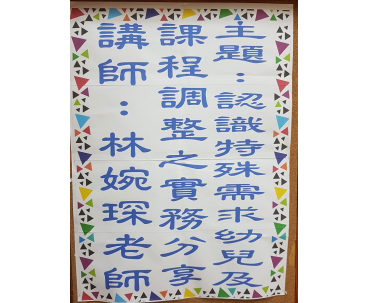 主題：認識特殊需求幼兒及
課程調整之實務分享
講師：林婉琛老師